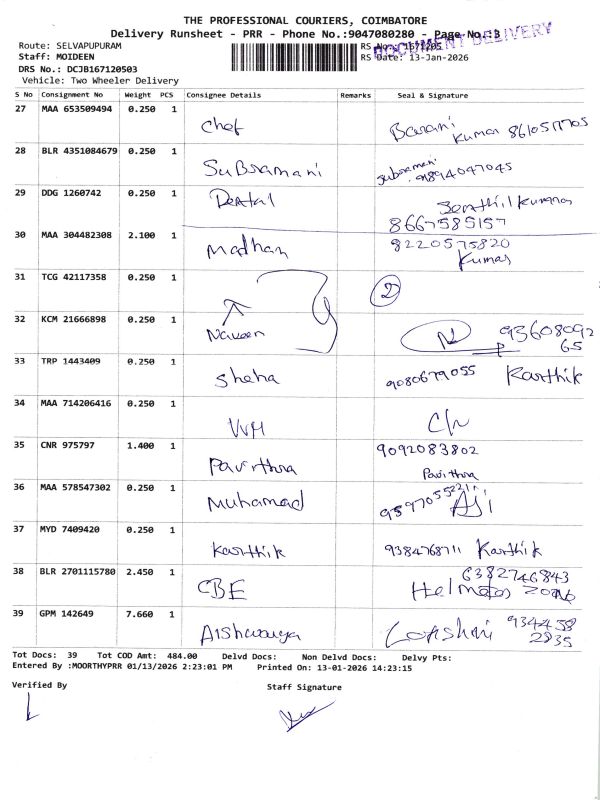 THE PROFESSIONAL COURIERS, COIMBATORE
Delivery Runsheet - PRR - Phone No.:9047080280 - Page No.:3
DOCUMENT DELIVERY
Route: SELVAPUPURAM
RS No: 1671205
Staff: MOIDEEN
RS Date: 13-Jan-2026
DRS No.: DCJB167120503
Vehicle: Two Wheeler Delivery
S No Consignment No Weight PCS Consignee Details Remarks Seal & Signature
27 MAA 653509494 0.250 1 Chef Barani Kumar
28 BLR 4351084679 0.250 1 SuBramani Subramani
29 DDG 1260742 0.250 1 Dental Senthil Kumaran 8667585157
30 MAA 304482308 2.100 1 Madhan 8220575820 Kumar
31 TCG 42117358 0.250 1 2
32 KCM 21666898 0.250 1 Naveen N 9360809265
33 TRP 1443409 0.250 1 Sneha 9080679055 Karthik
34 MAA 714206416 0.250 1 VVM
35 CNR 975797 1.400 1 Pavithra 9092083802 Pavithra
36 MAA 578547302 0.250 1 Muhamad
37 MYD 7409420 0.250 1 Karthik 9384768711 Karthik
38 BLR 2701115780 2.450 1 CBE 6382746843
39 GPM 142649 7.660 1 Aishwarya 9344582935
Tot Docs: 39 Tot COD Amt: 484.00 Delvd Docs: Non Delvd Docs: Delvy Pts:
Entered By :MOORTHYPRR 01/13/2026 2:23:01 PM Printed On: 13-01-2026 14:23:15
Verified By Staff Signature